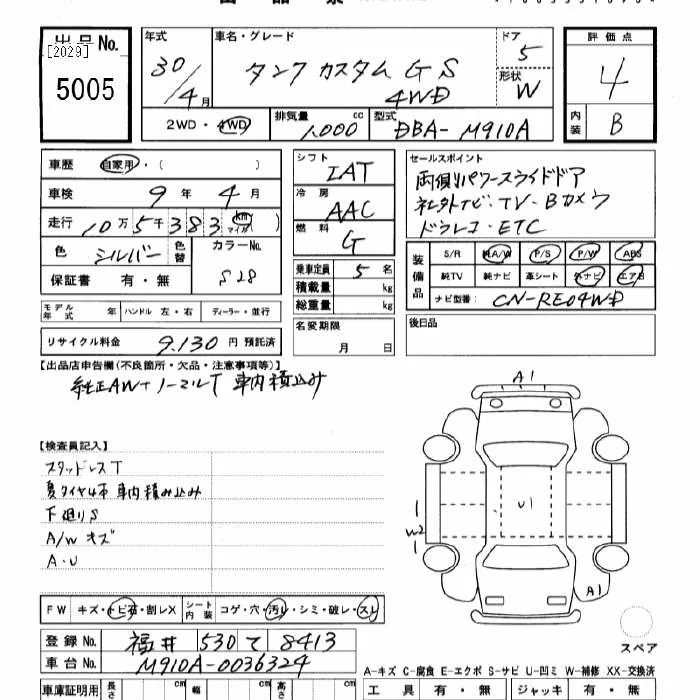 出品No.
[2029]
5005
年式
30/4月
車名・グレード
タンク カスタム G S
4WD
ドア
5
形状
W
評価点
4
内装
B
2WD・4WD
排気量 1,000 cc
型式 DBA-M910A
車歴 自家用・( )
車検 9年 4月
走行 10万5千383 km マイル
色 シルバー 色替 カラーNo. S28
保証書 有・無
シフト
IAT
冷房
AAC
燃料
G
乗車定員 5 名
積載量 kg
総重量 kg
セールスポイント
両側パワースライドドア
社外ナビ・TV・Bカメラ
ドラレコ・ETC
装備品
S/R 純A/W P/S P/W ABS
純TV 純ナビ 革シート 外ナビ エアB
ナビ型番: CN-RE04WD
モデル年式 年 ハンドル 左・右 ディーラー・並行
名変期限
月 日
後日品
リサイクル料金 9,130 円 預託済
【出品店申告欄(不良箇所・欠品・注意事項等)】
純正AW+ノーマルT 車内積込み
【検査員記入】
スタッドレスT
夏タイヤ4本 車内積み込み
下廻りS
A/W キズ
A・U
A1
U1
W2
A1
スペア
FW キズ・トビ石・割レX シート内装 コゲ・穴・汚レ・シミ・破レ・スレ
登録No. 福井 530 て 8413
車台No. M910A-0036324
A-キズ C-腐食 E-エクボ S-サビ U-凹ミ W-補修 XX-交換済
車庫証明用 長さ cm 幅 cm 高さ cm
工具 有・無 ジャッキ 有・無